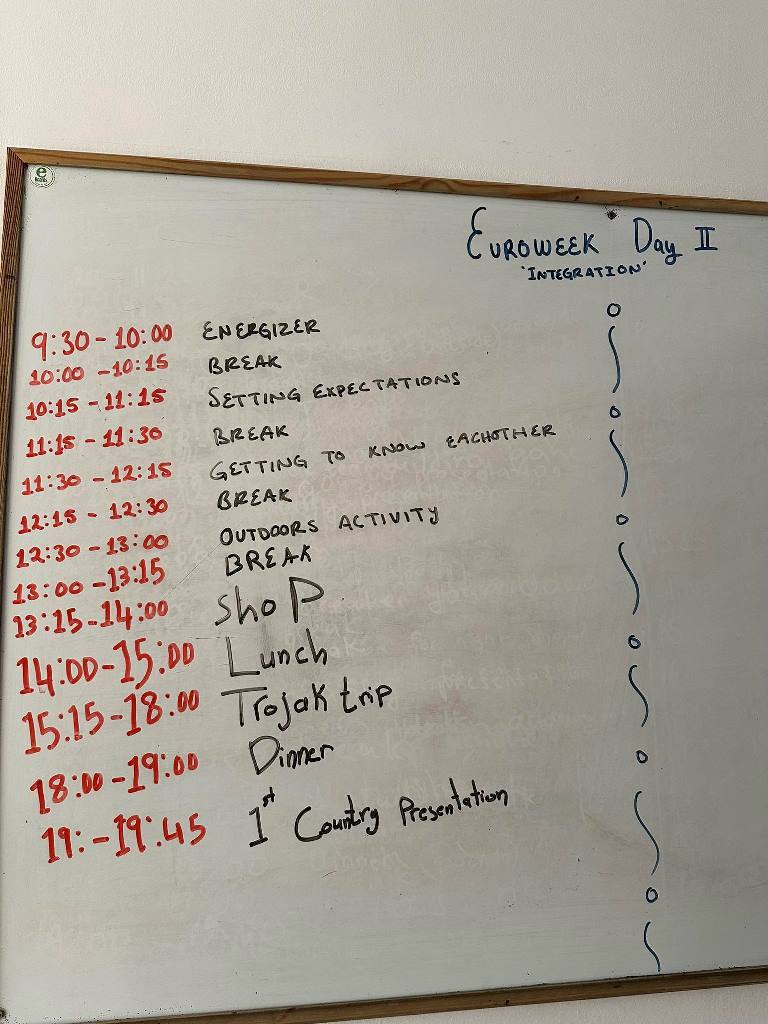 EUROWEEK Day II
'INTEGRATION'
9:30 - 10:00 ENERGIZER
10:00 - 10:15 BREAK
10:15 - 11:15 SETTING EXPECTATIONS
11:15 - 11:30 BREAK
11:30 - 12:15 GETTING TO KNOW EACHOTHER
12:15 - 12:30 BREAK
12:30 - 13:00 OUTDOORS ACTIVITY
13:00 - 13:15 BREAK
13:15 - 14:00 ShoP
14:00 - 15:00 Lunch
15:15 - 18:00 Trojak trip
18:00 - 19:00 Dinner
19: - 19:45 1st Country Presentation